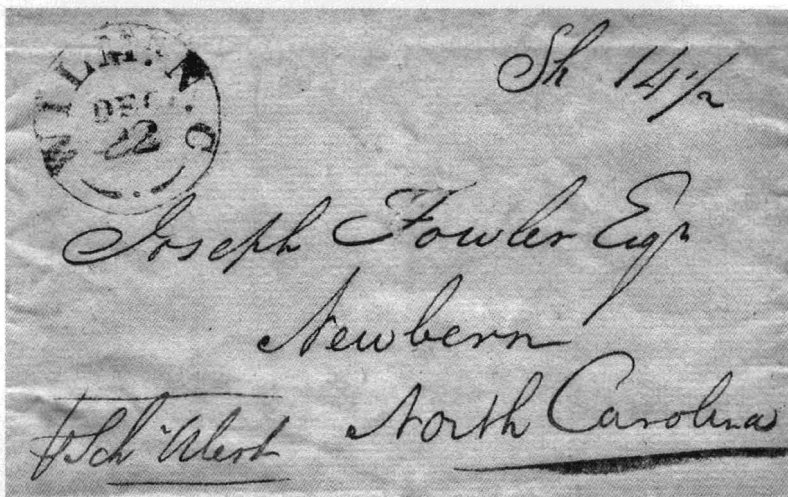 WILM. N.C
DEC
22
Sh 14 1/2
Joseph Fowler Esqr
Newbern
North Carolina
p Sch Alert